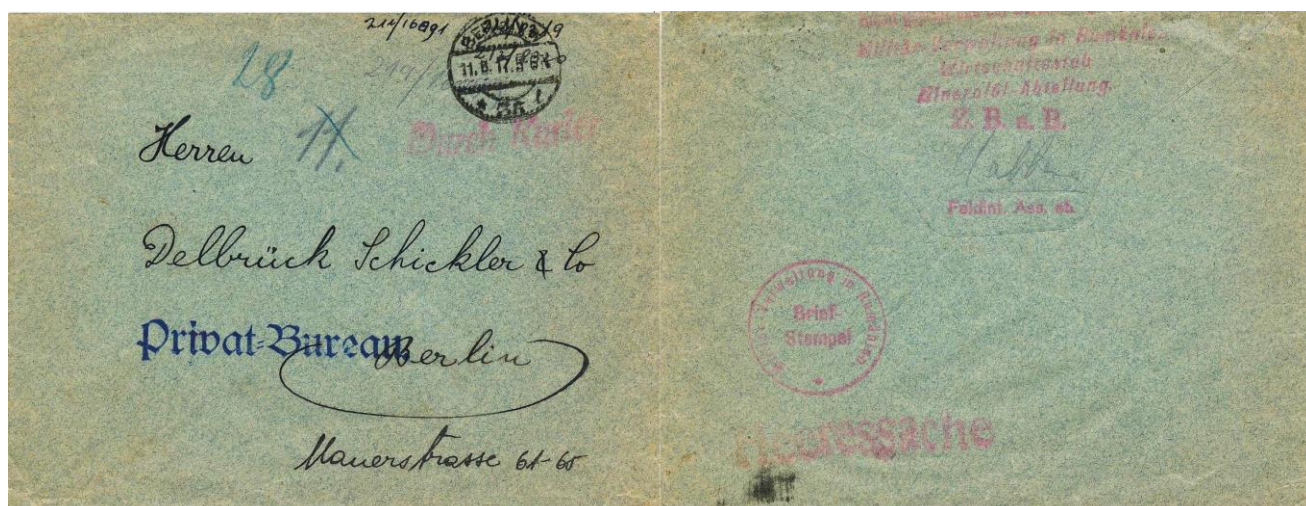 211/16891
28
11.
BERLIN
11.8.17.
Durch Kurier
Herren
Delbrück Schickler & Co
Privat-Bureau
Berlin
Mauerstrasse 61-65
Militär-Verwaltung in Rumänien
Wirtschaftsstab
Mineralöl-Abteilung.
Z. B. a. B.
Feldint. Ass.
Verwaltung in Rumänien
Brief-
Stempel
Heeressache